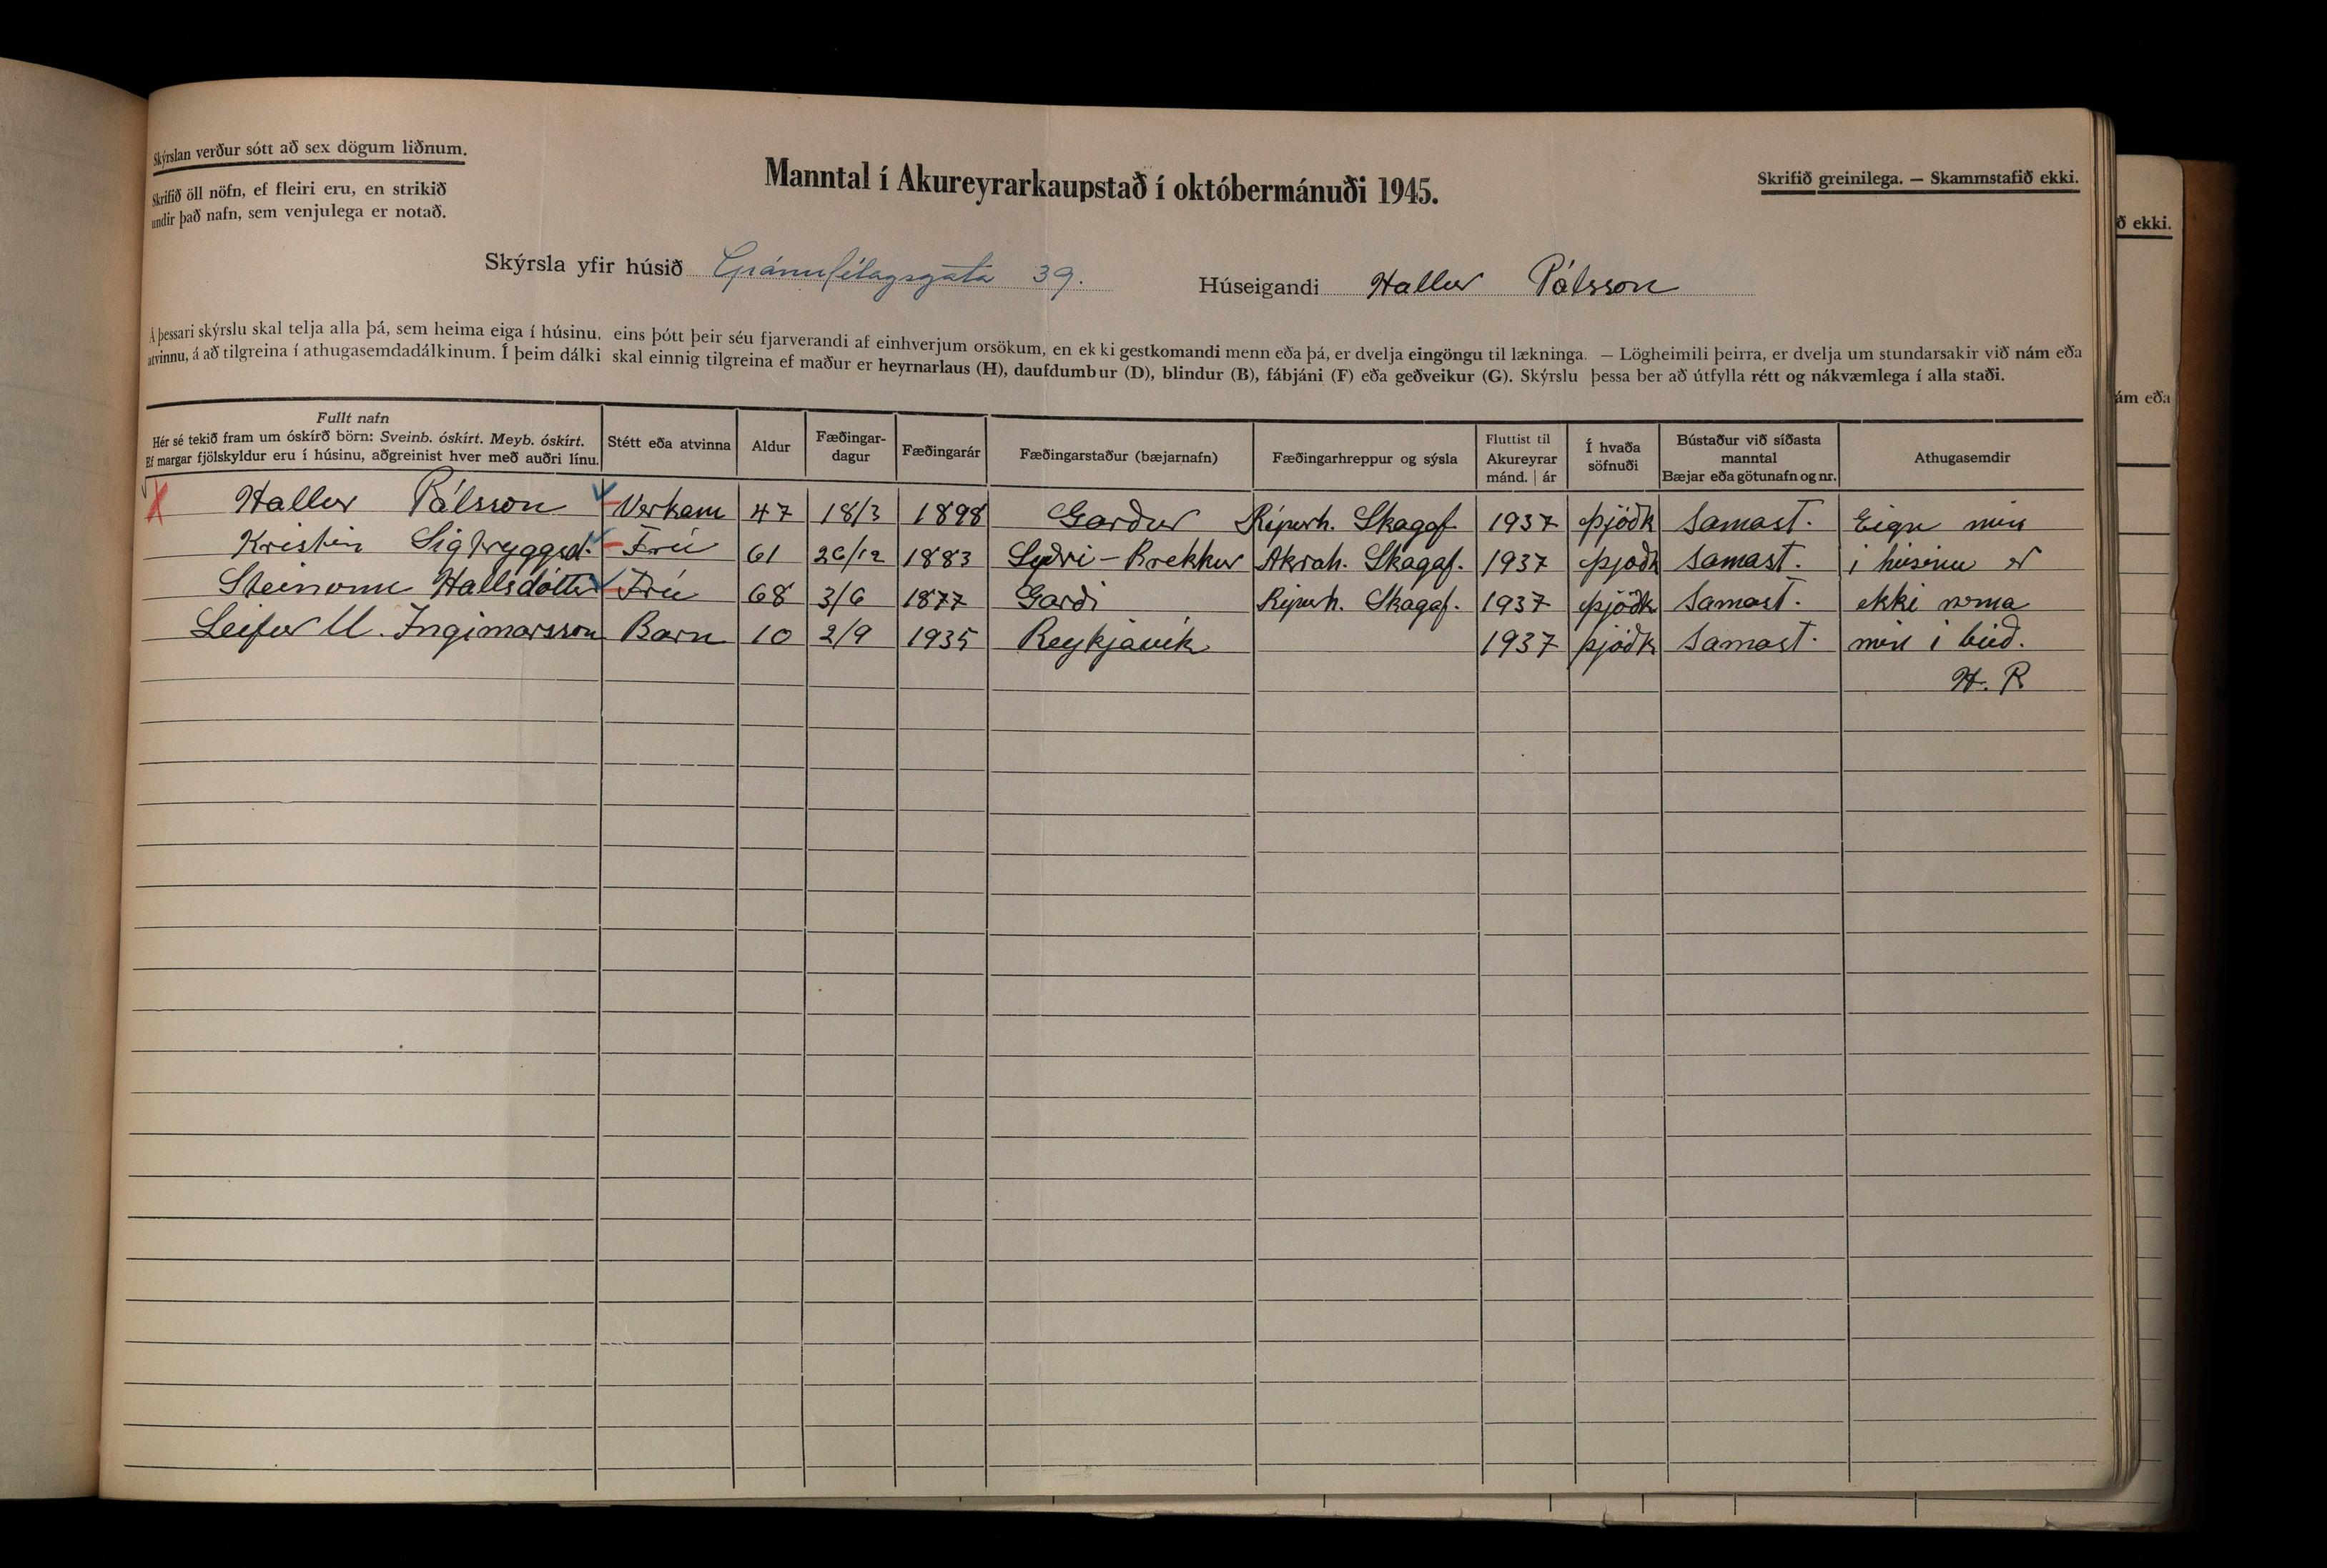 Skýrslan verður sótt að sex dögum liðnum.
Skrifið öll nöfn, ef fleiri eru, en strikið
undir það nafn, sem venjulega er notað.
Manntal í Akureyrarkaupstað í októbermánuði 1945.
Skrifið greinilega. — Skammstafið ekki.
Skýrsla yfir húsið Gránufélagsgata 39. Húseigandi Hallur Pálsson
Á þessari skýrslu skal telja alla þá, sem heima eiga í húsinu, eins þótt þeir séu fjarverandi af einhverjum orsökum, en ekki gestkomandi menn eða þá, er dvelja eingöngu til lækninga. — Lögheimili þeirra, er dvelja um stundarsakir við nám eða
atvinnu, á að tilgreina í athugasemdadálkinum. Í þeim dálki skal einnig tilgreina ef maður er heyrnarlaus (H), daufdumbur (D), blindur (B), fábjáni (F) eða geðveikur (G). Skýrslu þessa ber að útfylla rétt og nákvæmlega í alla staði.
Fullt nafn
Hér sé tekið fram um óskírð börn: Sveinb. óskírt. Meyb. óskírt.
Ef margar fjölskyldur eru í húsinu, aðgreinist hver með auðri línu.
Stétt eða atvinna
Aldur
Fæðingar-
dagur
Fæðingarár
Fæðingarstaður (bæjarnafn)
Fæðingarhreppur og sýsla
Fluttist til
Akureyrar
mánd. | ár
Í hvaða
söfnuði
Bústaður við síðasta
manntal
Bæjar eða götunafn og nr.
Athugasemdir
Hallur Pálsson Verkam 47 18/3 1898 Garður Ríperh. Skagaf. 1937 þjóðk Samast. Eign min
Kristin Sigtryggsd. Frú 61 26/12 1883 Syðri-Brekkur Akrah. Skagaf. 1937 þjoðk samast. i húsinu er
Steinunn Hallsdóttir Frú 68 3/6 1877 Garði Ríperh. Skagaf. 1937 þjóðk Samast. ekki nema
Leifur U. Ingimarsson Barn 10 2/9 1935 Reykjavik 1937 þjóðk Samast. min i búð.
H. P
ð ekki.
ám eða